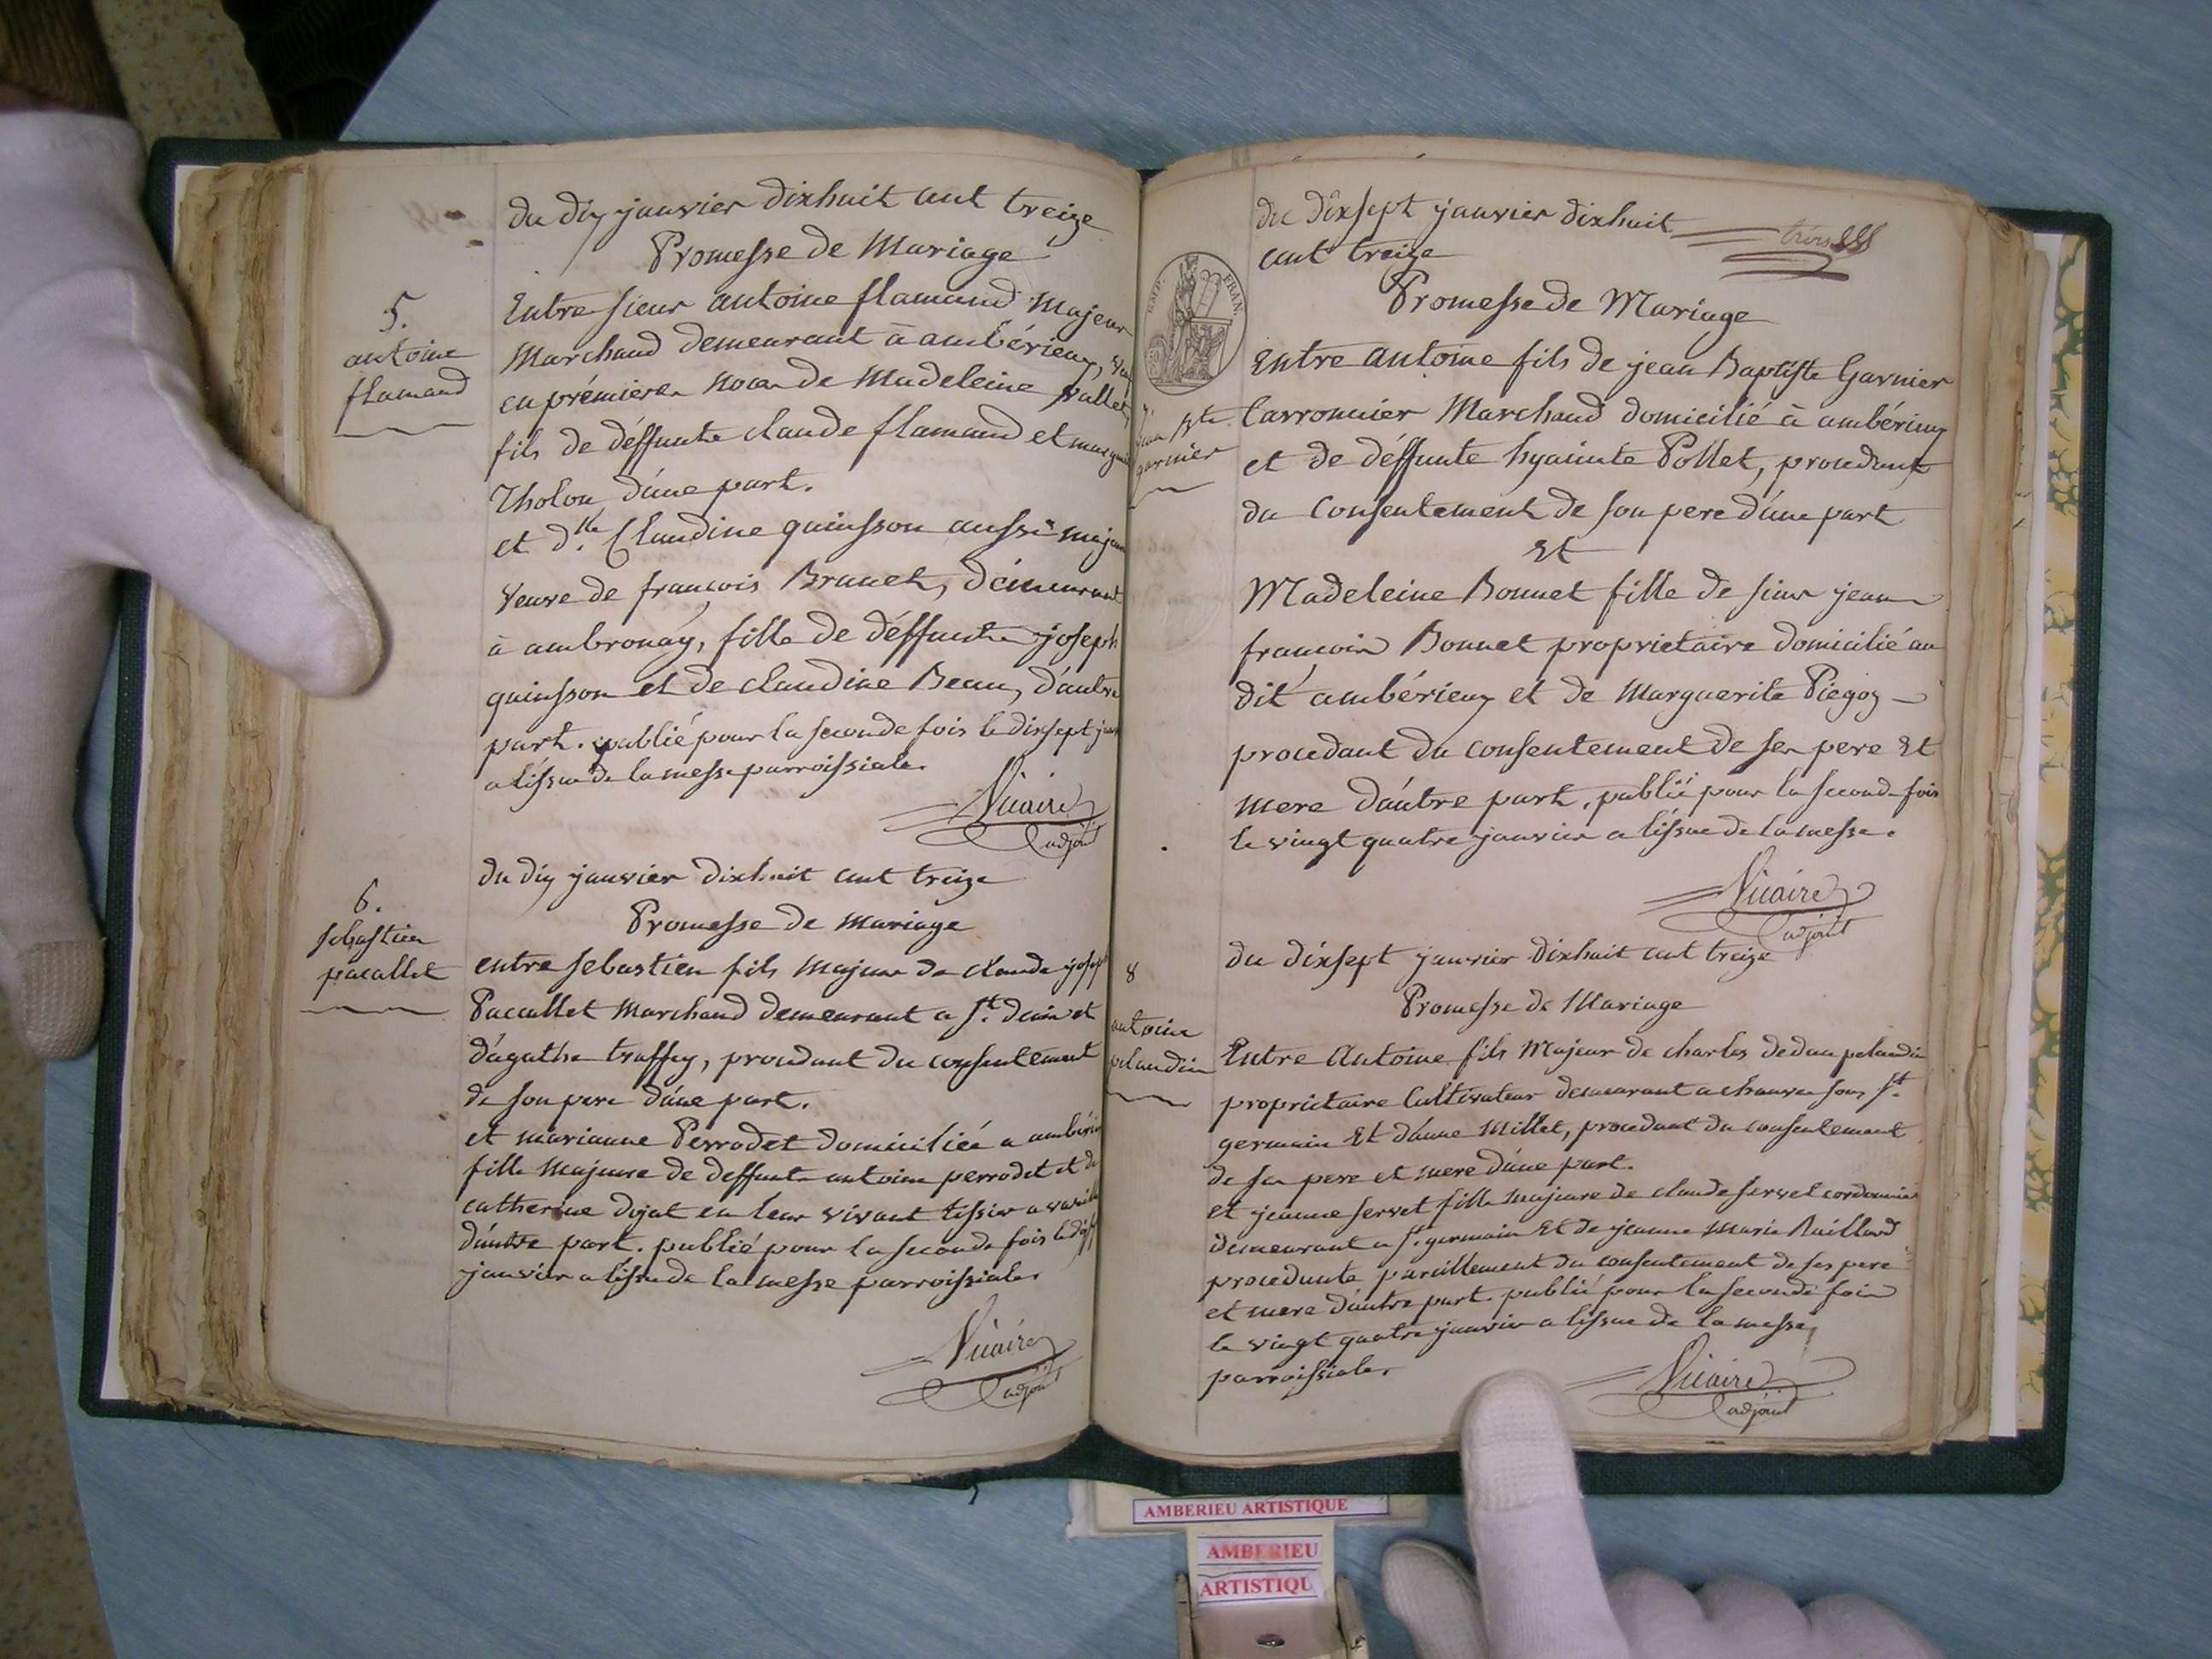 du dix janvier dixhuit cent treize
Promesse de Mariage
5.
antoine
flamand
Entre sieur antoine flamand Majeur
Marchand demeurant à ambérieux,
en prémiere noce de Madeleine vallet,
fils de déffunts claude flamand et
Tholon d'une part.
et d.lle Claudine quinsson aussi majeure
veuve de francois Brunet, démeurant
à ambronay, fille de déffunts joseph
quinsson et de claudine Beau, d'autre
part. publié pour la seconde fois le dixsept
a lissue de la messe parroissiale.
Vicaire
adjoint
du dix janvier dixhuit cent treize
Promesse de mariage
6.
sebastien
pacallet
entre sebastien fils majeur de claude joseph
Paccallet Marchand demeurant a St. denis et
d'agathe traffey, procedant du consentement
de son pere d'une part.
et marianne Perrodet domiciliée a
fille majeure de deffunts antoine perrodet et de
catherine dojat en leur vivant tissier a
d'autre part. publié pour la seconde fois le
janvier a lissue de la messe parroissiale.
Vicaire
adjoint
du dixsept janvier dixhuit
trois
cent treize
Promesse de Mariage
EMP. FRAN.
jean Bte
garnier
Entre antoine fils de jean Baptiste Garnier
Carronnier Marchand domicilié à ambérieux
et de déffunte hyacinte Pollet, procedant
du Consentement de son pere d'une part
Et
Madeleine Bonnet fille de sieur jean
francois Bonnet proprietaire domicilié au
dit ambérieux et de Marguerite Piegoz
procedant du consentement de ses pere Et
mere d'autre part, publié pour la seconde fois
le vingt quatre janvier a lissue de la messe.
Vicaire
adjoint
du dixsept janvier dixhuit cent treize
Promesse de Mariage
8
antoine
pelaudin
Entre Antoine fils Majeur de charles deduc pelaudin
proprietaire Cultivateur demeurant a chauves sous St.
germain Et d'anne Millet, procedant du consentement
de ses pere et mere d'une part.
et jeanne servet fille majeure de claude servet cordonnier
demeurant a St. germain Et de jeanne Marie Baillard
procedante pareillement du consentement de ses pere
et mere d'autre part. publié pour la seconde fois
le vingt quatre janvier a lissue de la messe
parroissiale.
Vicaire
adjoint
AMBERIEU ARTISTIQUE
AMBERIEU
ARTISTIQU